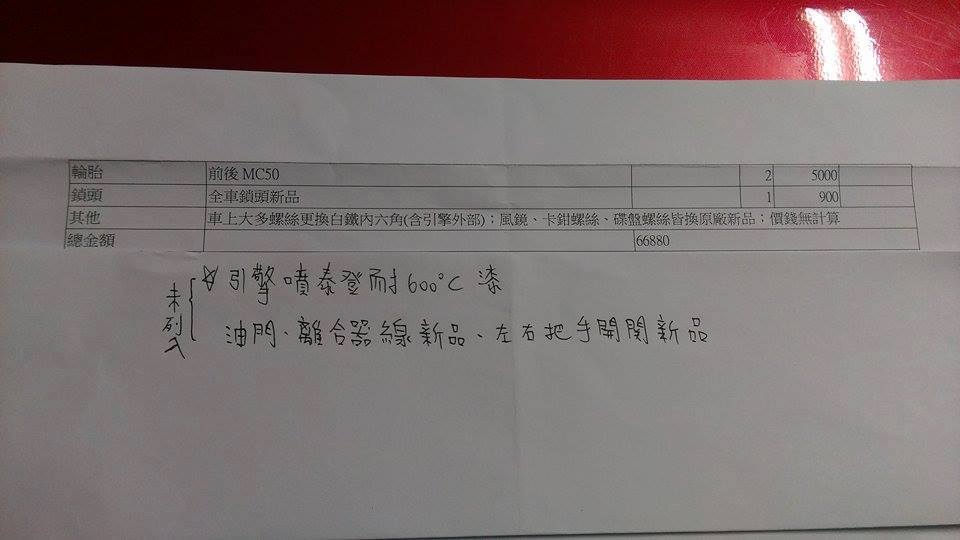 輪胎 前後 MC50 2 5000
鎖頭 全車鎖頭新品 1 900
其他 車上大多螺絲更換白鐵內六角(含引擎外部)；風鏡、卡鉗螺絲、碟盤螺絲皆換原廠新品；價錢無計算
總金額 66880
未列入
☆引擎噴泰登耐600°C 漆
油門、離合器線新品、左右把手開関新品